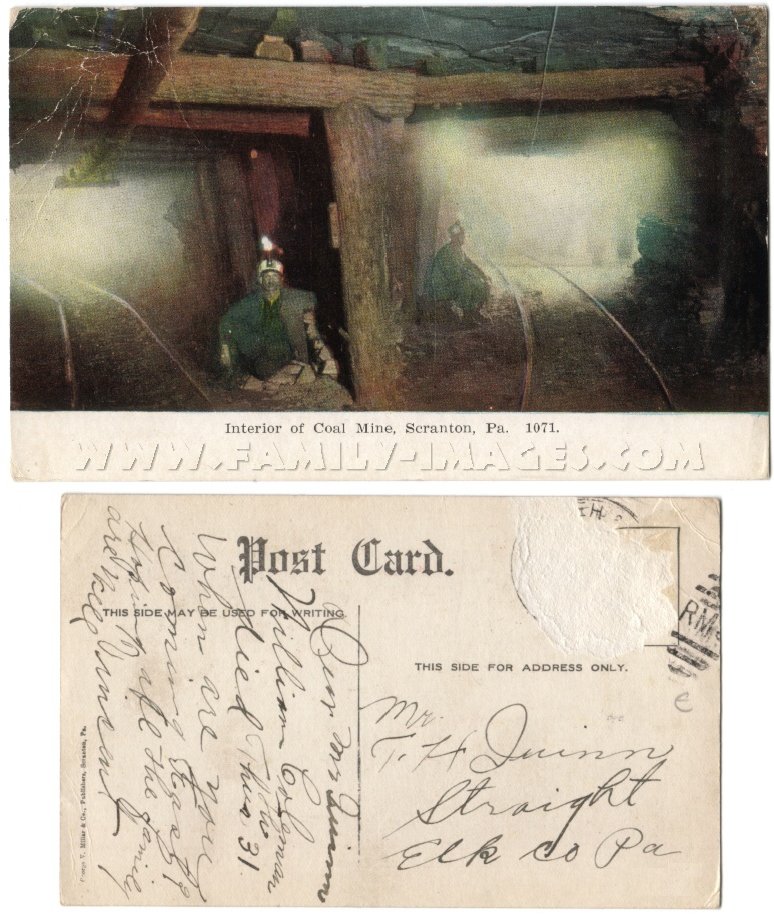 Interior of Coal Mine, Scranton, Pa. 1071.
WWW.FAMILY-IMAGES.COM
Post Card.
THIS SIDE MAY BE USED FOR WRITING
THIS SIDE FOR ADDRESS ONLY.
RMS
Dear Mrs Quinn
William Coleman
died Thur 31
When are you
Coming
Hoping all the family
are well Vincent
Mr.
T. H Quinn
Straight
Elk co Pa
George V. Millar & Co., Publishers, Scranton, Pa.